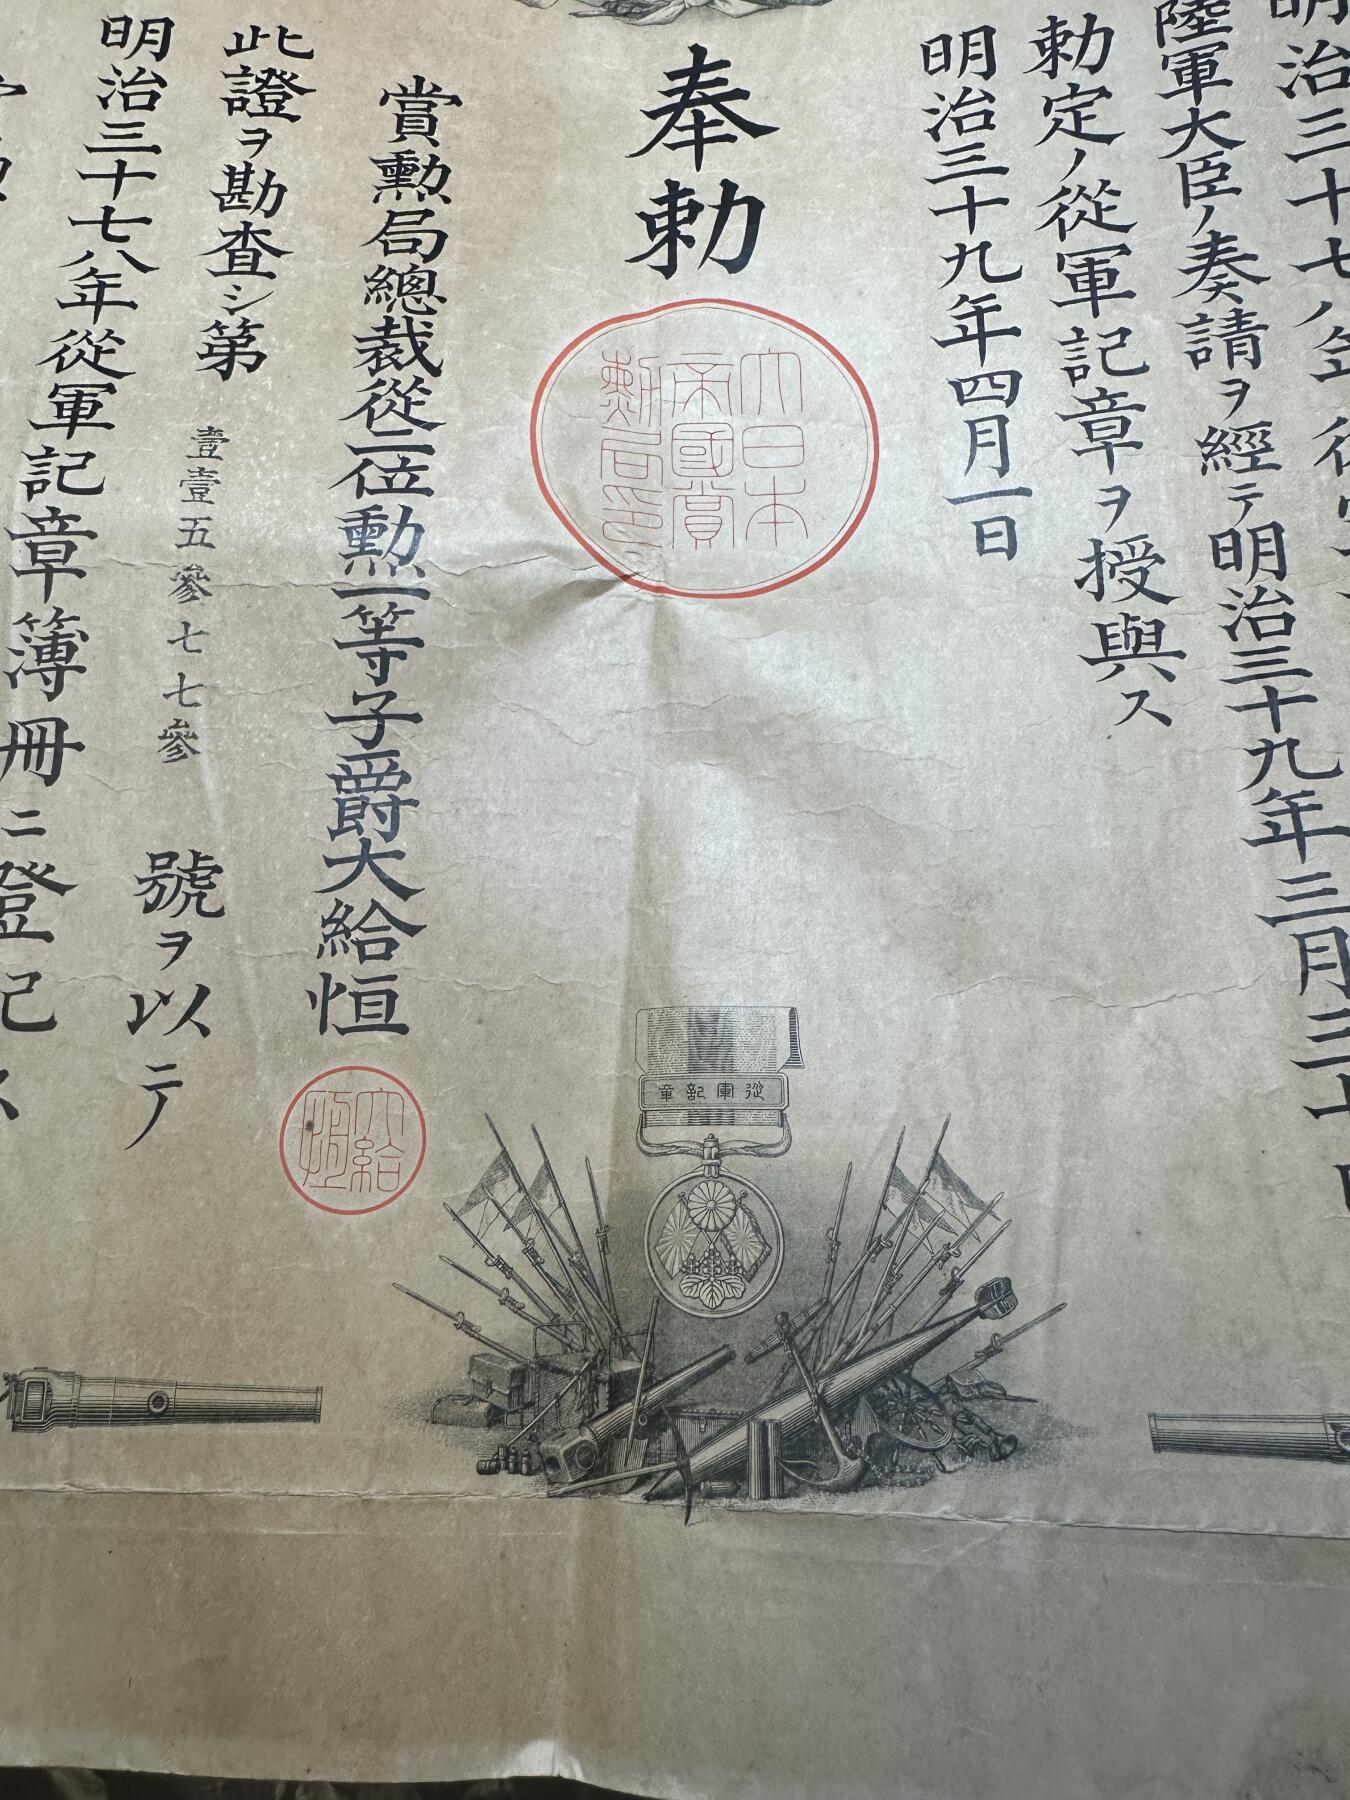 明治三十七八年從
陸軍大臣ノ奏請ヲ經テ明治三十九年三月三十
勅定ノ從軍記章ヲ授與ス
明治三十九年四月一日
奉勅
大日本
帝國賞
勲局印
賞勳局總裁從二位勳一等子爵大給恒
大給
恒
此證ヲ勘査シ第壹壹五參七七參號ヲ以テ
明治三十七八年從軍記章簿冊ニ登記ス
從軍記章